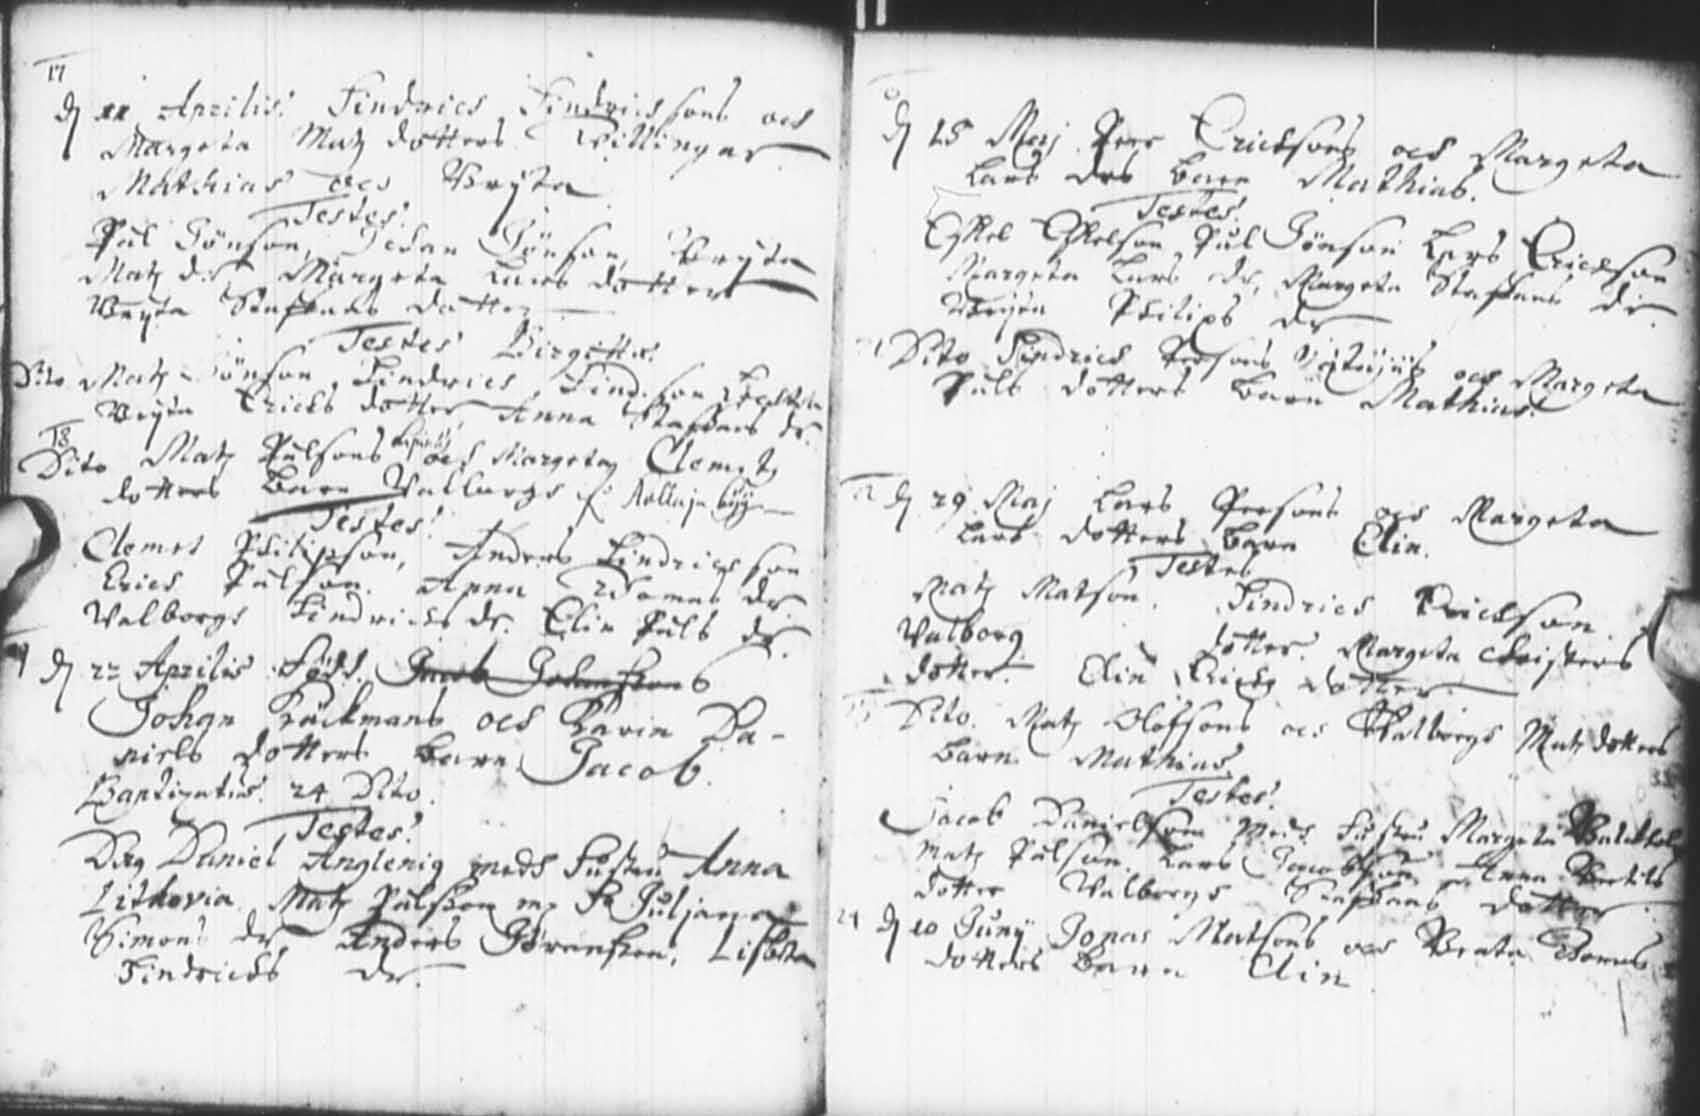 17
d 11 Aprilis. Hindrics Hindrichssons och
Margeta Matz dotters Tvillingar
Mathias och Bryta
Testes.
Pål Jönson, Johan Jönson, Bryta
Matz dr. Margeta Lars dotter
Bryta Staffans dotter
Testes Birgittæ.
Dito Matz Jönson, Hindrics Hind.son
Bryta Erichs dotter Anna Staffans dr.
18
Dito Matz Pålsons och Margeta Clemetz
dotters barn Valborgh
Testes.
Clemet Philipson, Anders Hindrichson
Erics Pålson. Anna Thomas dr
Valborgh Hindrichs dr. Elin Påls dr.
d 22 Aprilis född. Jacob Johanssons
Johan Bäckmans och Karin Da-
niels dotters barn Jacob.
Baptizatus. 24 Dito.
Testes.
Daniel Anglenig medh hustru Anna
Lithovia Matz Pålsson Juliana
Simons dr Anders Göransson, Lisbeta
Hindrichs dr.
d 15 Maj Pers Erichsons och Margeta
Lars drs barn Mathias.
Testes.
Eskel Eskelson Pål Jönson Lars Erichson
Margeta Lars dr, Margeta Staffans dr.
Bryta Philips dr
Dito Hindrics Persons och Margeta
Påls dotters barn Mathias.
d 29 Maj Lars Persons och Margeta
Lars dotters barn Elin.
Testes
Matz Matson. Hindrics Erichson.
Valborg dotter. Margeta Christers
dotter. Elin Erichz dotter.
Dito. Matz Olofsons och Valborgs Matz dotters
barn Mathias
Testes.
Jacob Danielson medh hustru Margeta
Matz Pålson. Lars Jacobson Anna Bertils
dotter Valborgh Staffans dotter
24 d 10 Junij Jonas Matsons och Beata Thomas
dotters barn Elin